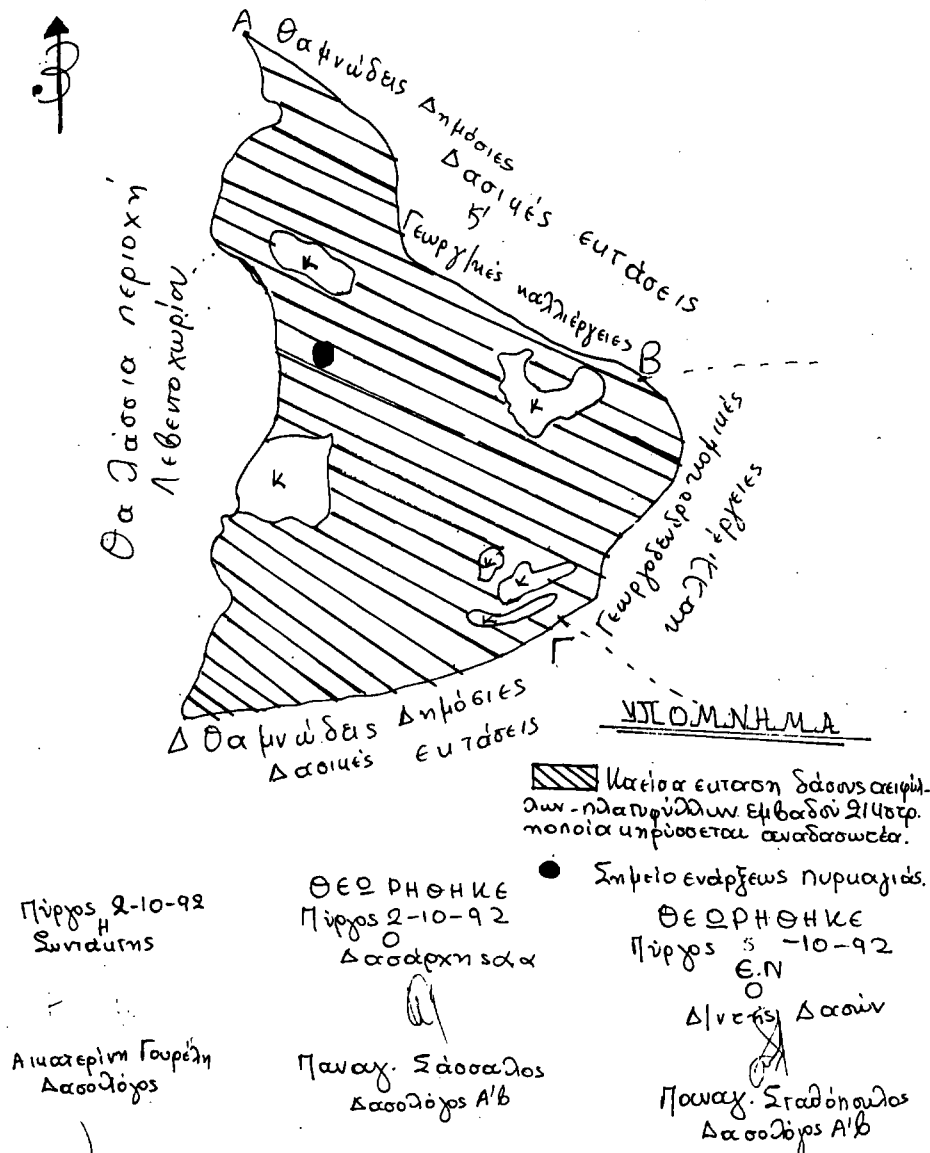 Β
Α
Θαμνώδεις Δημόσιες
Δασικές εκτάσεις
κ'
Γεωργ/κές καλλιέργειες
Β
Θαλάσσια περιοχή
Λεβεντοχωρίου
Κ
Κ
Κ
Κ
Κ
Κ
Γεωργοδενδροκομικές
καλλιέργειες
Γ
Δ
Θαμνώδεις Δημόσιες
Δασικές εκτάσεις
ΥΠΟΜΝΗΜΑ
Καείσα εκταση δάσους αειφύλ-
λων-πλατυφύλλων εμβαδού 214στρ.
ηοποία κηρύσσεται αναδασωτέα.
Σημείο ενάρξεως πυρκαγιάς.
Πύργος 2-10-92
Η
Συντάκτης
Αικατερίνη Γουρέλη
Δασολόγος
ΘΕΩΡΗΘΗΚΕ
Πύργος 2-10-92
Ο
Δασάρχης α α
Παναγ. Σάσσαλος
Δασολόγος Α'β
ΘΕΩΡΗΘΗΚΕ
Πύργος -10-92
Ε.Ν
Ο
Δ/ντής Δασών
Παναγ. Σταθόπουλος
Δασολόγος Α'β